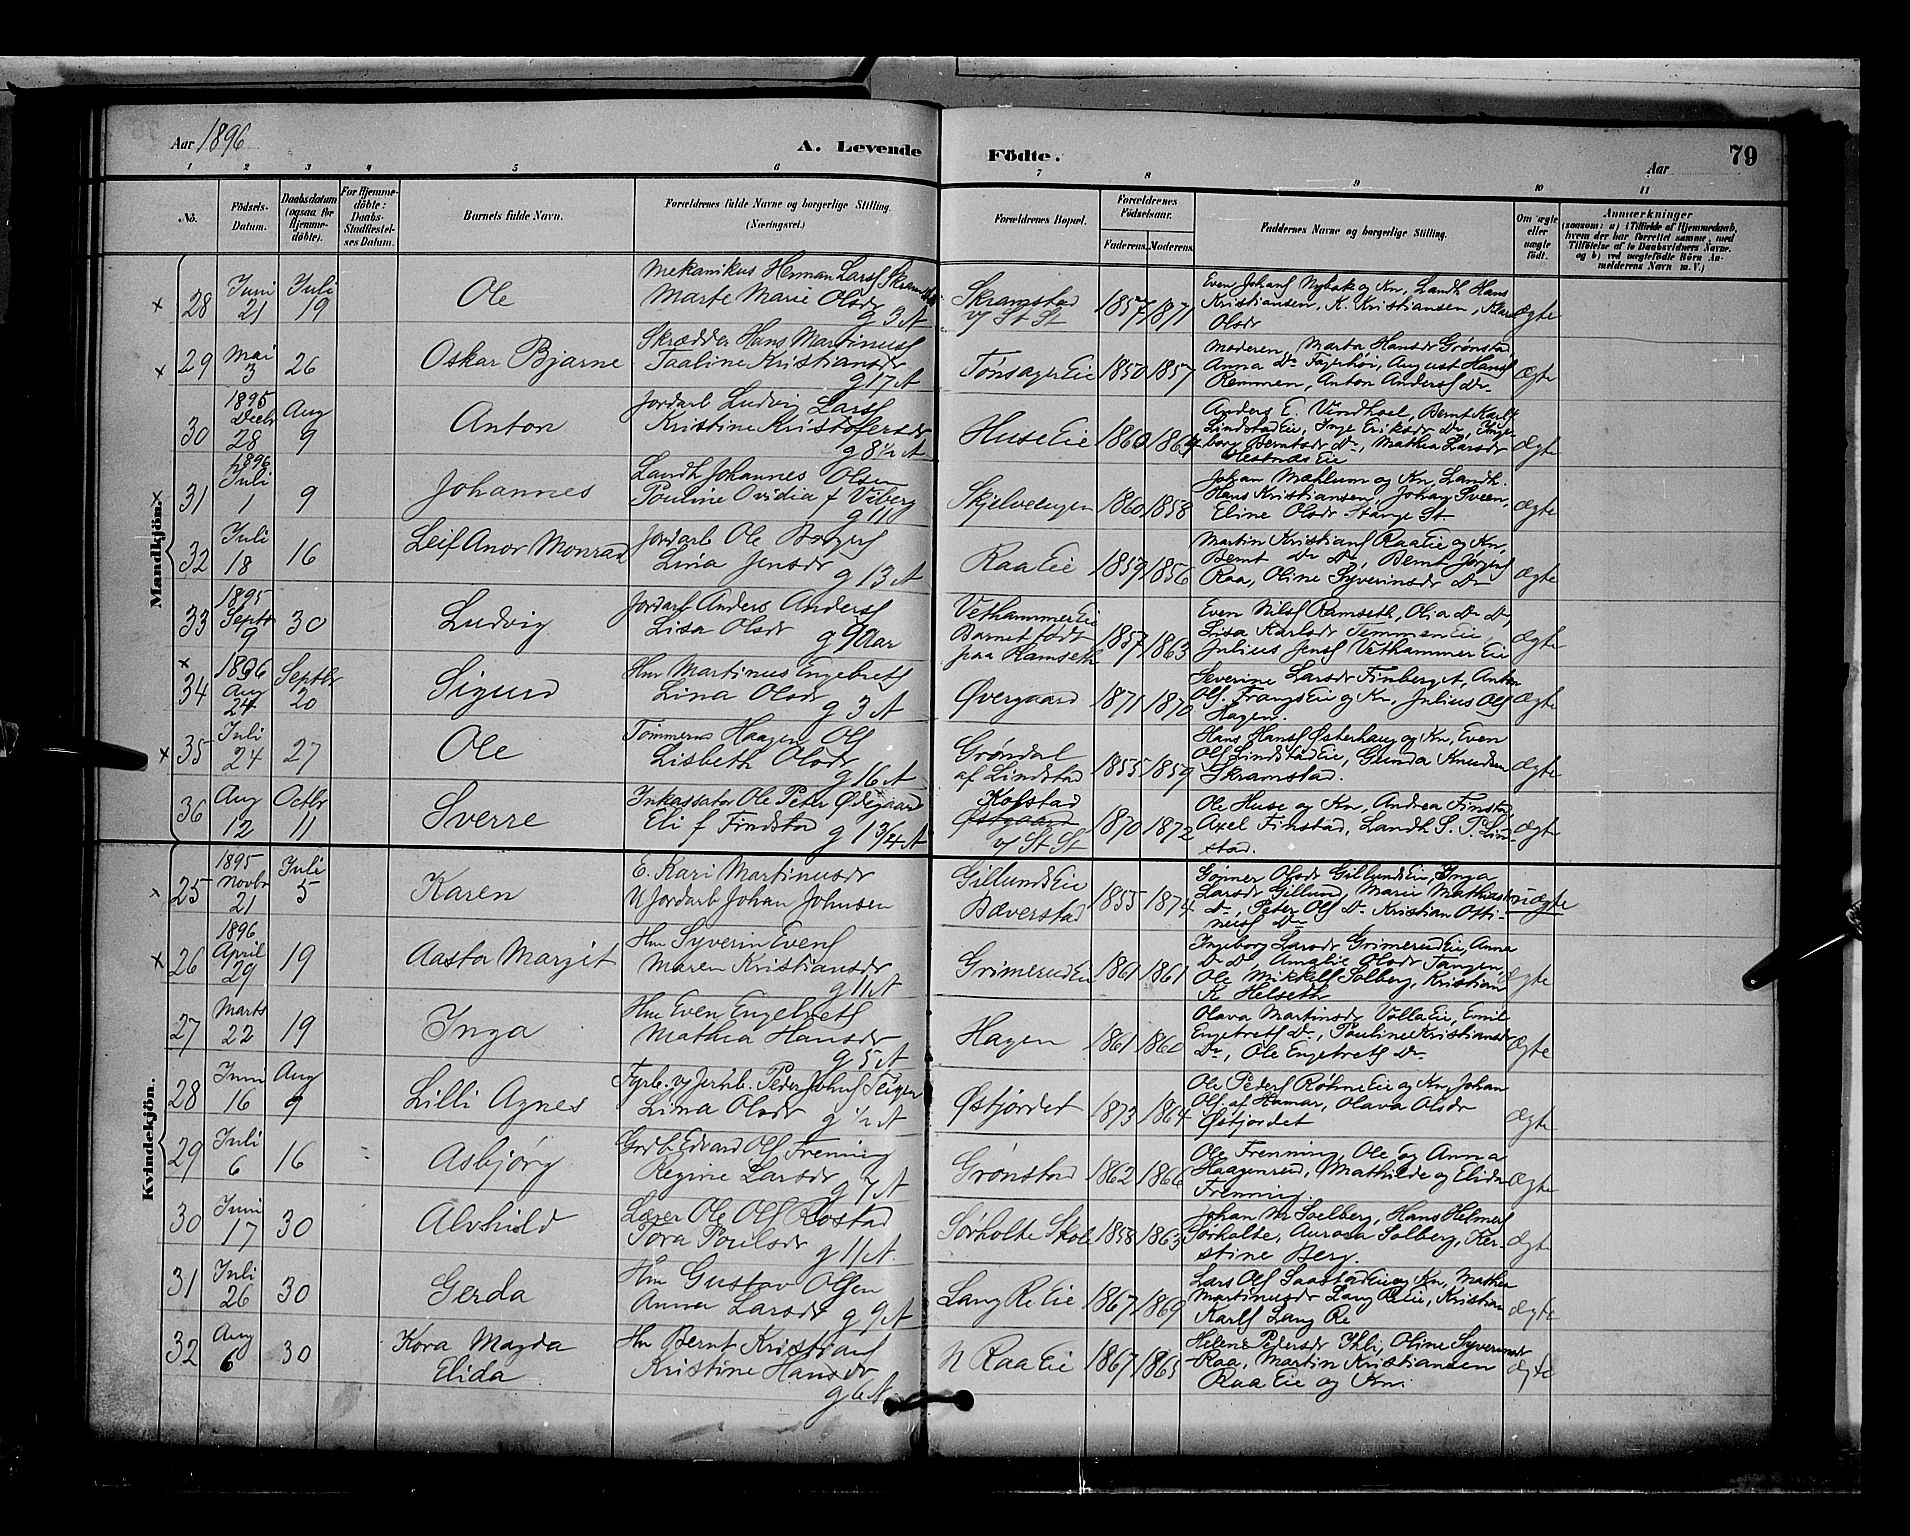 Aar 1896
A. Levende
Födte.
Aar
79
1 2 3 4 5 6 7 8 9 10 11
No.
Födsels-Datum.
Daabsdatum (ogsaa for Hjemmedöbte).
For Hjemmedöbte: Daabs-Stadfæstelses Datum.
Barnets fulde Navn.
Forældrenes fulde Navne og borgerlige Stilling. (Næringsvei.)
Forældrenes Bopæl.
Forældrenes Födselsaar.
Faderens. Moderens.
Faddernes Navne og borgerlige Stilling.
Om ægte eller uægte födt.
Anmærkninger
(saasom: a) i Tilfælde af Hjemmedaab, hvem der har forrettet samme, med Tilföielse af to Daabsvidners Navne. og b) ved uægtefödte Börn Anmelderens Navn m. V.)
Mandkjön.
x 28 Juni 21 Juli 19 Ole
Mekanikus Herman Larss Skramstad
Marte Marie Olsdr g 3 A
Skramstad v/ St St 1857 1871
Even Johans Nybak og Kn, Landh Hans
Kristiansen, K. Kristiansen, Klara
Olsdr
Ægte
x 29 Mai 3 26 Oskar Bjarne
Skrædder Hans Martinuss
Taaline Kristiansdr g 17 A
Tønsager Eie 1850 1857
Moderen, Marta Hansdr Grønstad
Anna Do Fagerhøi, August Hans
Remmen, Anton Anderss Do
Ægte
30 1895 Decbr 28 Aug 9 Anton
Jordarb Ludvig Larss
Kristine Kristofersdr g 8½ A
Huse Eie 1860 1864
Anders E. Vindhoel, Bernt Karls
Lindstad Eie, Inge Eriksdr Do, Inge
borg Berntsdr Do, Mathea Larsdr
Ægte
x 31 1896 Juli 1 9 Johannes
Landh Johannes Olsen
Pouline Ovidia f Viberg g 11
Skjelvelugen 1860 1858
Johan Mæhlum og Kn, Landh.
Hans Kristiansen, Johan Sveen,
Eline Olsdr Stange St.
Ægte
32 Juli 18 16 Leif Anor Monrad
Jordarb Ole
Lina Jensdr g 13 A
Raa Eie 1859 1856
Martin Kristians Raa Eie og Kn,
Bernt Do Do, Bernt Jørgens
Raa, Oline Syverinsdr Do
Ægte
33 1895 Septbr 9 30 Ludvig
Jordarb Anders Anderss
Lisa Olsdr g 9 Aar
Vethammer Eie
Barnet født
paa Ramseth
1857 1863
Even Nilss Ramseth, Olia Do Do,
Lisa Karlsdr Temmen Eie
Julius Jenss Vethammer Eie
Ægte
x 34 1896 Aug 24 Septbr 20 Sigurd
Hm Martinus Engebrets
Lina Olsdr g 3 A
Øvergaard 1871 1870
Severine Larsdr Finberget, Anton
Ols. Frangs Eie og Kn, Julius Ols
Hagen.
Ægte
x 35 Juli 24 27 Ole
Tømmerm Haagen Ols
Lisbeth Olsdr g 16 A
Grøndal
af Lindstad
1855 1859
Hans Hanss Østerhaug og Kn, Even
Ols Lindstad Eie, Gunda Knudsen
Skramstad.
Ægte
36 Aug 12 Octbr 11 Sverre
Inkassator Ole Peter Ødegaard
Eli f Findstad g 1 3/4 A
Kolstad
Østgaard
v/ St St
1870 1872
Ole Huse og Kn, Andrea Finstad
Axel Finstad, Landh S. P. Lin-
stad.
Ægte
Kvindekjön.
x 25 1895 Novbr 21 Juli 5 Karen
E. Kari Martinusdr
U Jordarb Johan Johnsen
Gillunds Eie
Bæverstad
1855 1874
Gønner Olsdr Gillunds Eie, Inga
Larsdr Gillund, Marie Mathiasdr
Do, Peter Ols Do Kristian Otti-
nuss Do
uægte
x 26 1896 April 29 19 Aasta Margit
Hm Syverin Evens
Maren Kristiansdr g 11 A
Grimerud Eie 1861 1861
Ingeborg Larsdr Grimerud Eie, Anna
Do Do, Amalie Olsdr Tangen,
Ole Mikkels Solberg, Kristian
K Helseth
Ægte
27 Marts 22 19 Inga
Hm Even Engebrets
Mathea Hansdr g 5 A
Hagen 1861 1860
Olava Martinsdr Volla Eie, Emil
Engebrets Do, Pauline Kristiansdr
Do, Ole Engebrets Do
Ægte
28 Juni 16 Aug 9 Lilli Agnes
Fyrb. v/ Jernb. Peder Johns Teigen
Lina Olsdr g ½ A
Østjordet 1873 1864
Ole Peders Røhne Eie og Kn, Johan
Ols. af Hamar, Olava Olsdr
Østjordet
Ægte
29 Juli 6 16 Asbjörg
Gardb Edvard Ols Frenning
Regine Larsdr g 7 A
Grønstad 1862 1866
Ole Frenning, Ole og Anna
Haagenrud, Mathilde og Elida
Frenning.
Ægte
30 Juni 17 30 Alvhild
Lærer Ole Ols Rostad
Tora Poulsdr g 11 A.
Sørholte Skole 1858 1863
Johan M Soelberg, Hans Helmers
Sørholte, Aurora Solberg, Ker-
stine Berg.
Ægte
31 Juli 26 30 Gerda
Hm Gustav Olsen
Anna Larsdr g 9 A
Lang Re Eie 1867 1869
Lars Ols Saastad Eie og Kn, Mathea
Martinusdr Lang Re Eie, Kristian
Karls Lang Re
Ægte
32 Aug 6 30 Kora Magda
Elida
Hm Bernt Kristians
Kristine Hansdr g 6 A
N Raa Eie 1867 1865
Helene Pedersdr Ihle, Oline Syverinsdr
Raa, Martin Kristiansen
Raa Eie og Kn.
Ægte